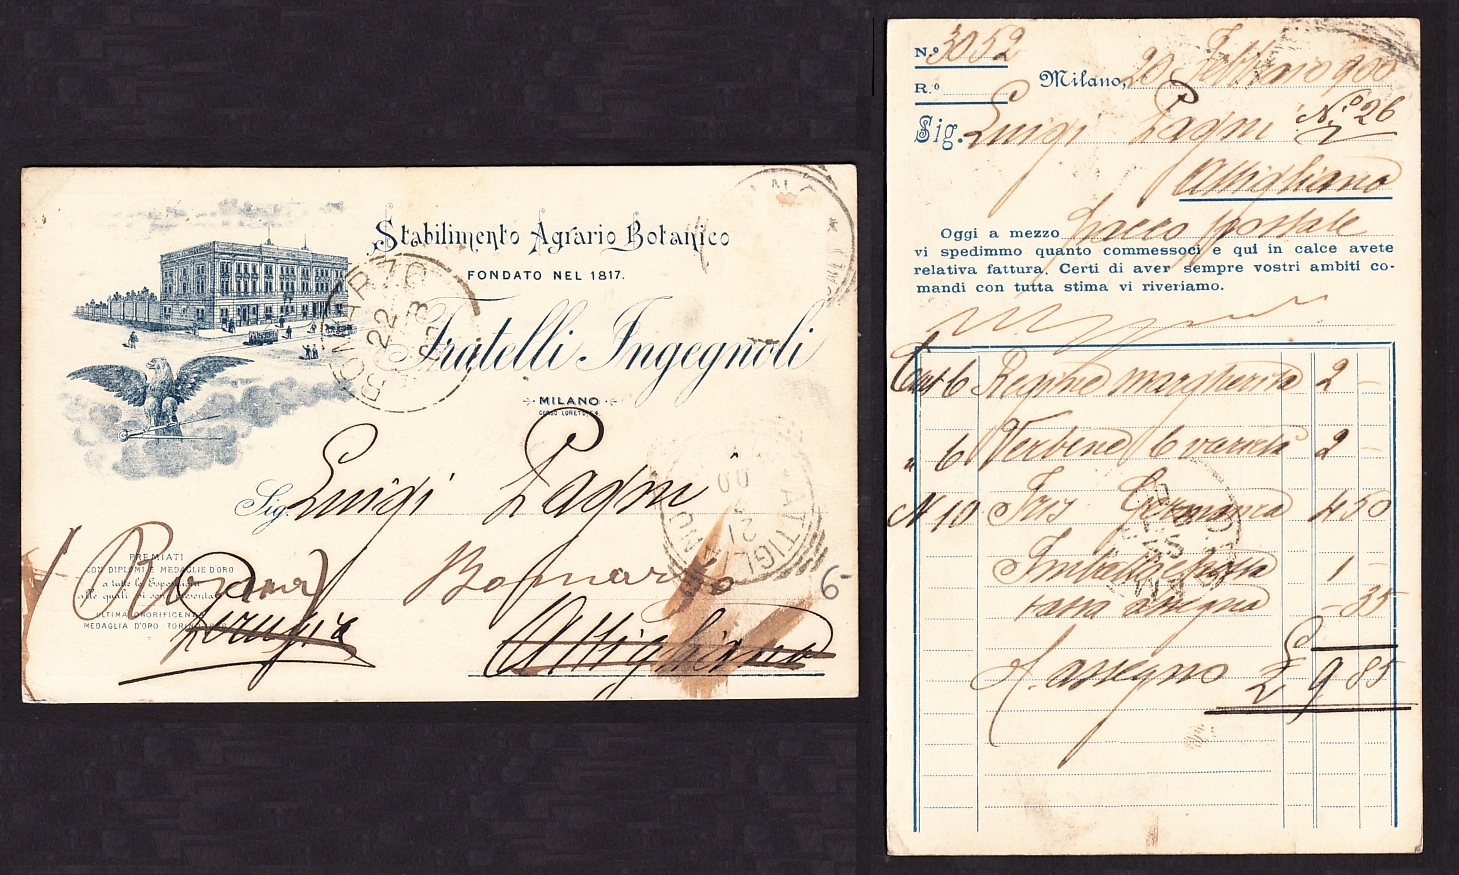 Stabilimento Agrario Botanico
FONDATO NEL 1817.
Fratelli Ingegnoli
MILANO
CORSO LORETO, 54
BOMARZO
22
ATTIGLIANO
21
Sig. Luigi Pagni
Bomarzo
(Roma)
Attigliano
Perugia
PREMIATI
CON DIPLOMI E MEDAGLIE D'ORO
a tutte le Esposizioni
alle quali si son presentati
ULTIMA ONORIFICENZA
MEDAGLIA D'ORO TORINO
6-
N.º 3052
R.º
Milano, 20 Febbraio 900
Sig. Luigi Pagni Nº 26
Attigliano
Oggi a mezzo pacco postale
vi spedimmo quanto commessoci e qui in calce avete
relativa fattura. Certi di aver sempre vostri ambiti co-
mandi con tutta stima vi riveriamo.
6 Regine margherite 2 -
" 6 Verbene 6 varietà 2 -
N 10 Iris Germanica 4 50
Imballaggio 1 -
tassa assegno - 35
A. assegno £ 9 85